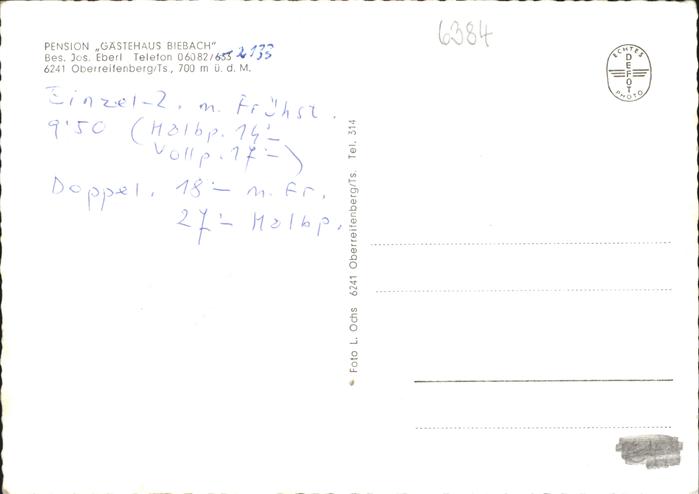 6384
PENSION „GÄSTEHAUS BIEBACH"
Bes. Jos. Eberl Telefon 06082/655 2133
6241 Oberreifenberg/Ts., 700 m ü. d. M.
Einzel-Z. m. Frühst.
9'50 (Halbp. 14'-
Vollp. 17'-)
Doppel. 18'- m. Fr.
27'- Halbp.
Foto L. Ochs 6241 Oberreifenberg/Ts. Tel. 314
ECHTES
DEFOT
PHOTO